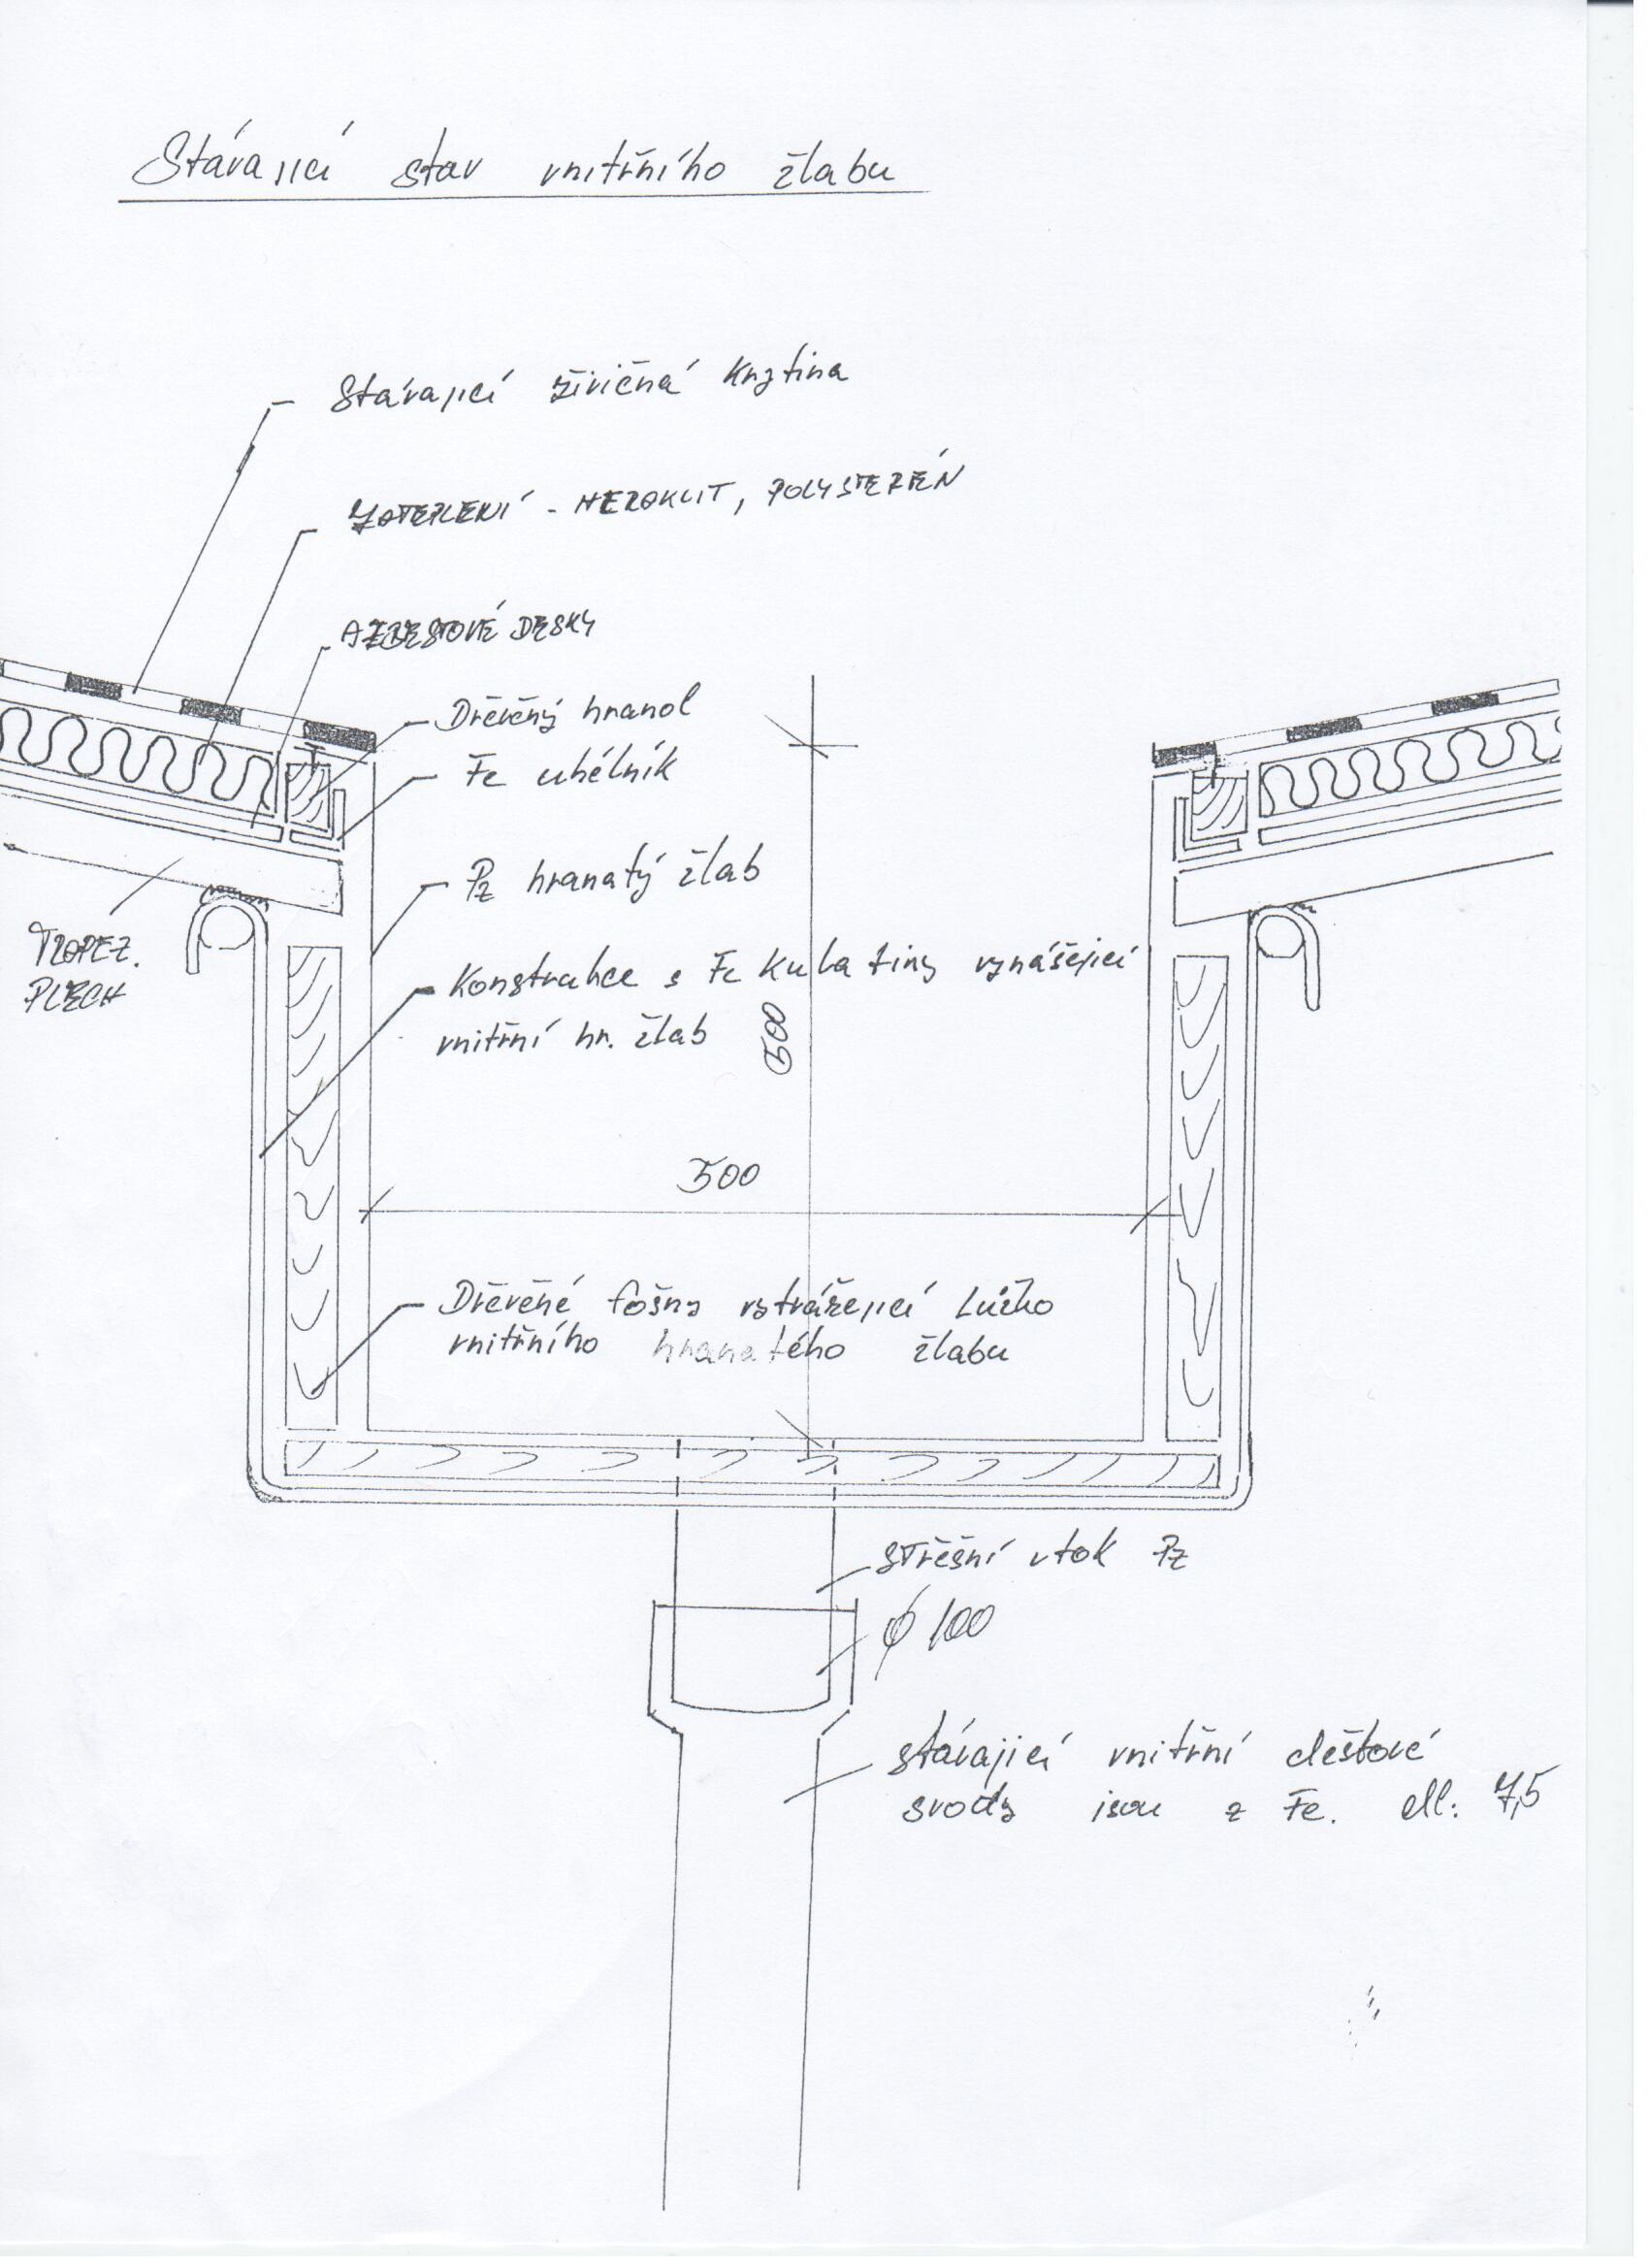 Stávající stav vnitřního žlabu
Stávající živičná krytina
ZATEPLENÍ - HERAKLIT, POLYSTERÉN
AZBESTOVÉ DESKY
Dřevěný hranol
Fe uhélník
Pz hranatý žlab
TRAPEZ.
PLECH
Konstrukce s Fe kulatiny vynášející
vnitřní hr. žlab
500
500
Dřevěné fošny vytvářející Lůžko
vnitřního hranatého žlabu
střešní vtok Pz
ϕ 100
stávající vnitřní dešťové
svody jsou z Fe. dl: 7,5